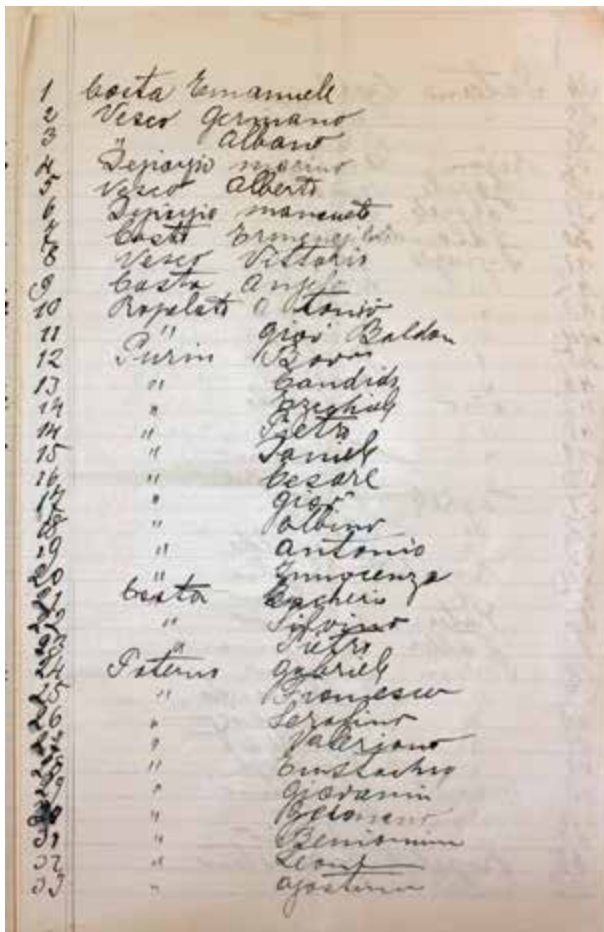 1 Costa Emanuele
2 Vesco Germano
3 " Albano
4 Depiaggio marino
5 Vesco Alberto
6 Depiaggio mansueto
7 Costa
8 Vesco Vittorio
9 Costa Angelo
10 Ropelato Antonio
11 " Giov Baldon
12 Purin
13 " Candido
14 " Ezechiele
14 " Pietro
15 " Daniele
16 " Cesare
17 " Giov
18 " albino
19 " antonio
20 " Innocenzo
21 Costa
22 " Silvino
23 " Pietro
24 Paterno Gabriele
25 " Francesco
26 " Serafino
" Valeriano
" Eustachio
29 " Giovanni
30 " Germano
31 " Beniamino
32 " Leone
33 " agostino